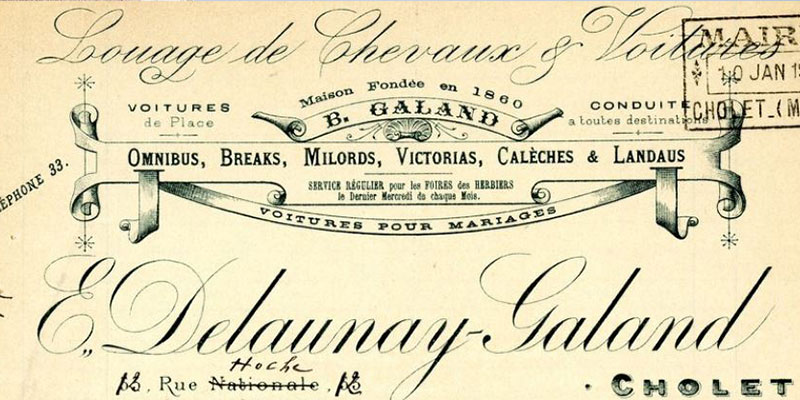 Louage de Chevaux & Voitures
MAIR
10 JAN 1
CHOLET (M
Maison Fondée en 1860
B. GALAND
VOITURES
de Place
CONDUITE
a toutes destinations
OMNIBUS, BREAKS, MILORDS, VICTORIAS, CALÈCHES & LANDAUS
ÉPHONE 33.
SERVICE RÉGULIER pour les FOIRES des HERBIERS
le Dernier Mercredi de chaque Mois.
VOITURES POUR MARIAGES
E. Delaunay-Galand
Hoche
, Rue Nationale ,
· CHOLET